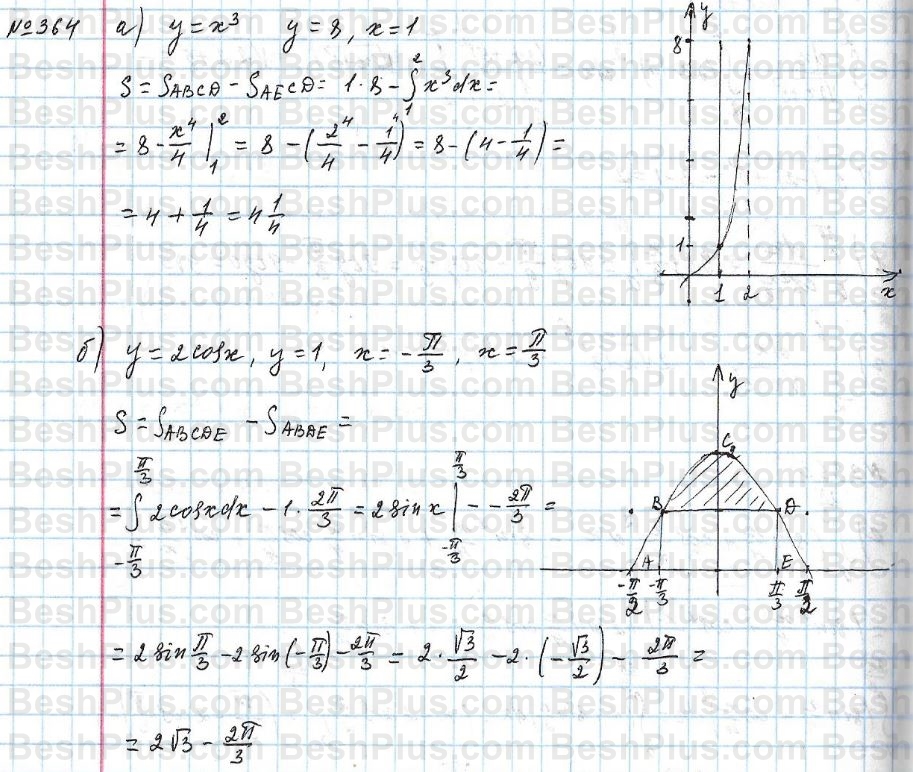 №364 а) y = x³ y = 8, x = 1
S = S_ABCD - S_AECD = 1·8 - ∫₁² x³dx =
= 8 - x⁴/4 |₁² = 8 - (2⁴/4 - 1⁴/4) = 8 - (4 - 1/4) =
= 4 + 1/4 = 4 1/4
y
8
1
1 2 x
б) y = 2cosx, y = 1, x = -π/3, x = π/3
S = S_ABCDE - S_ABDE =
= ∫_{-π/3}^{π/3} 2cosxdx - 1·2π/3 = 2sinx |_{-π/3}^{π/3} - - 2π/3 =
y
C 2
B D
A E
-π/2 -π/3 π/3 π/2
= 2sin π/3 - 2sin(-π/3) - 2π/3 = 2·√3/2 - 2·(-√3/2) - 2π/3 =
= 2√3 - 2π/3
BeshPlus.com